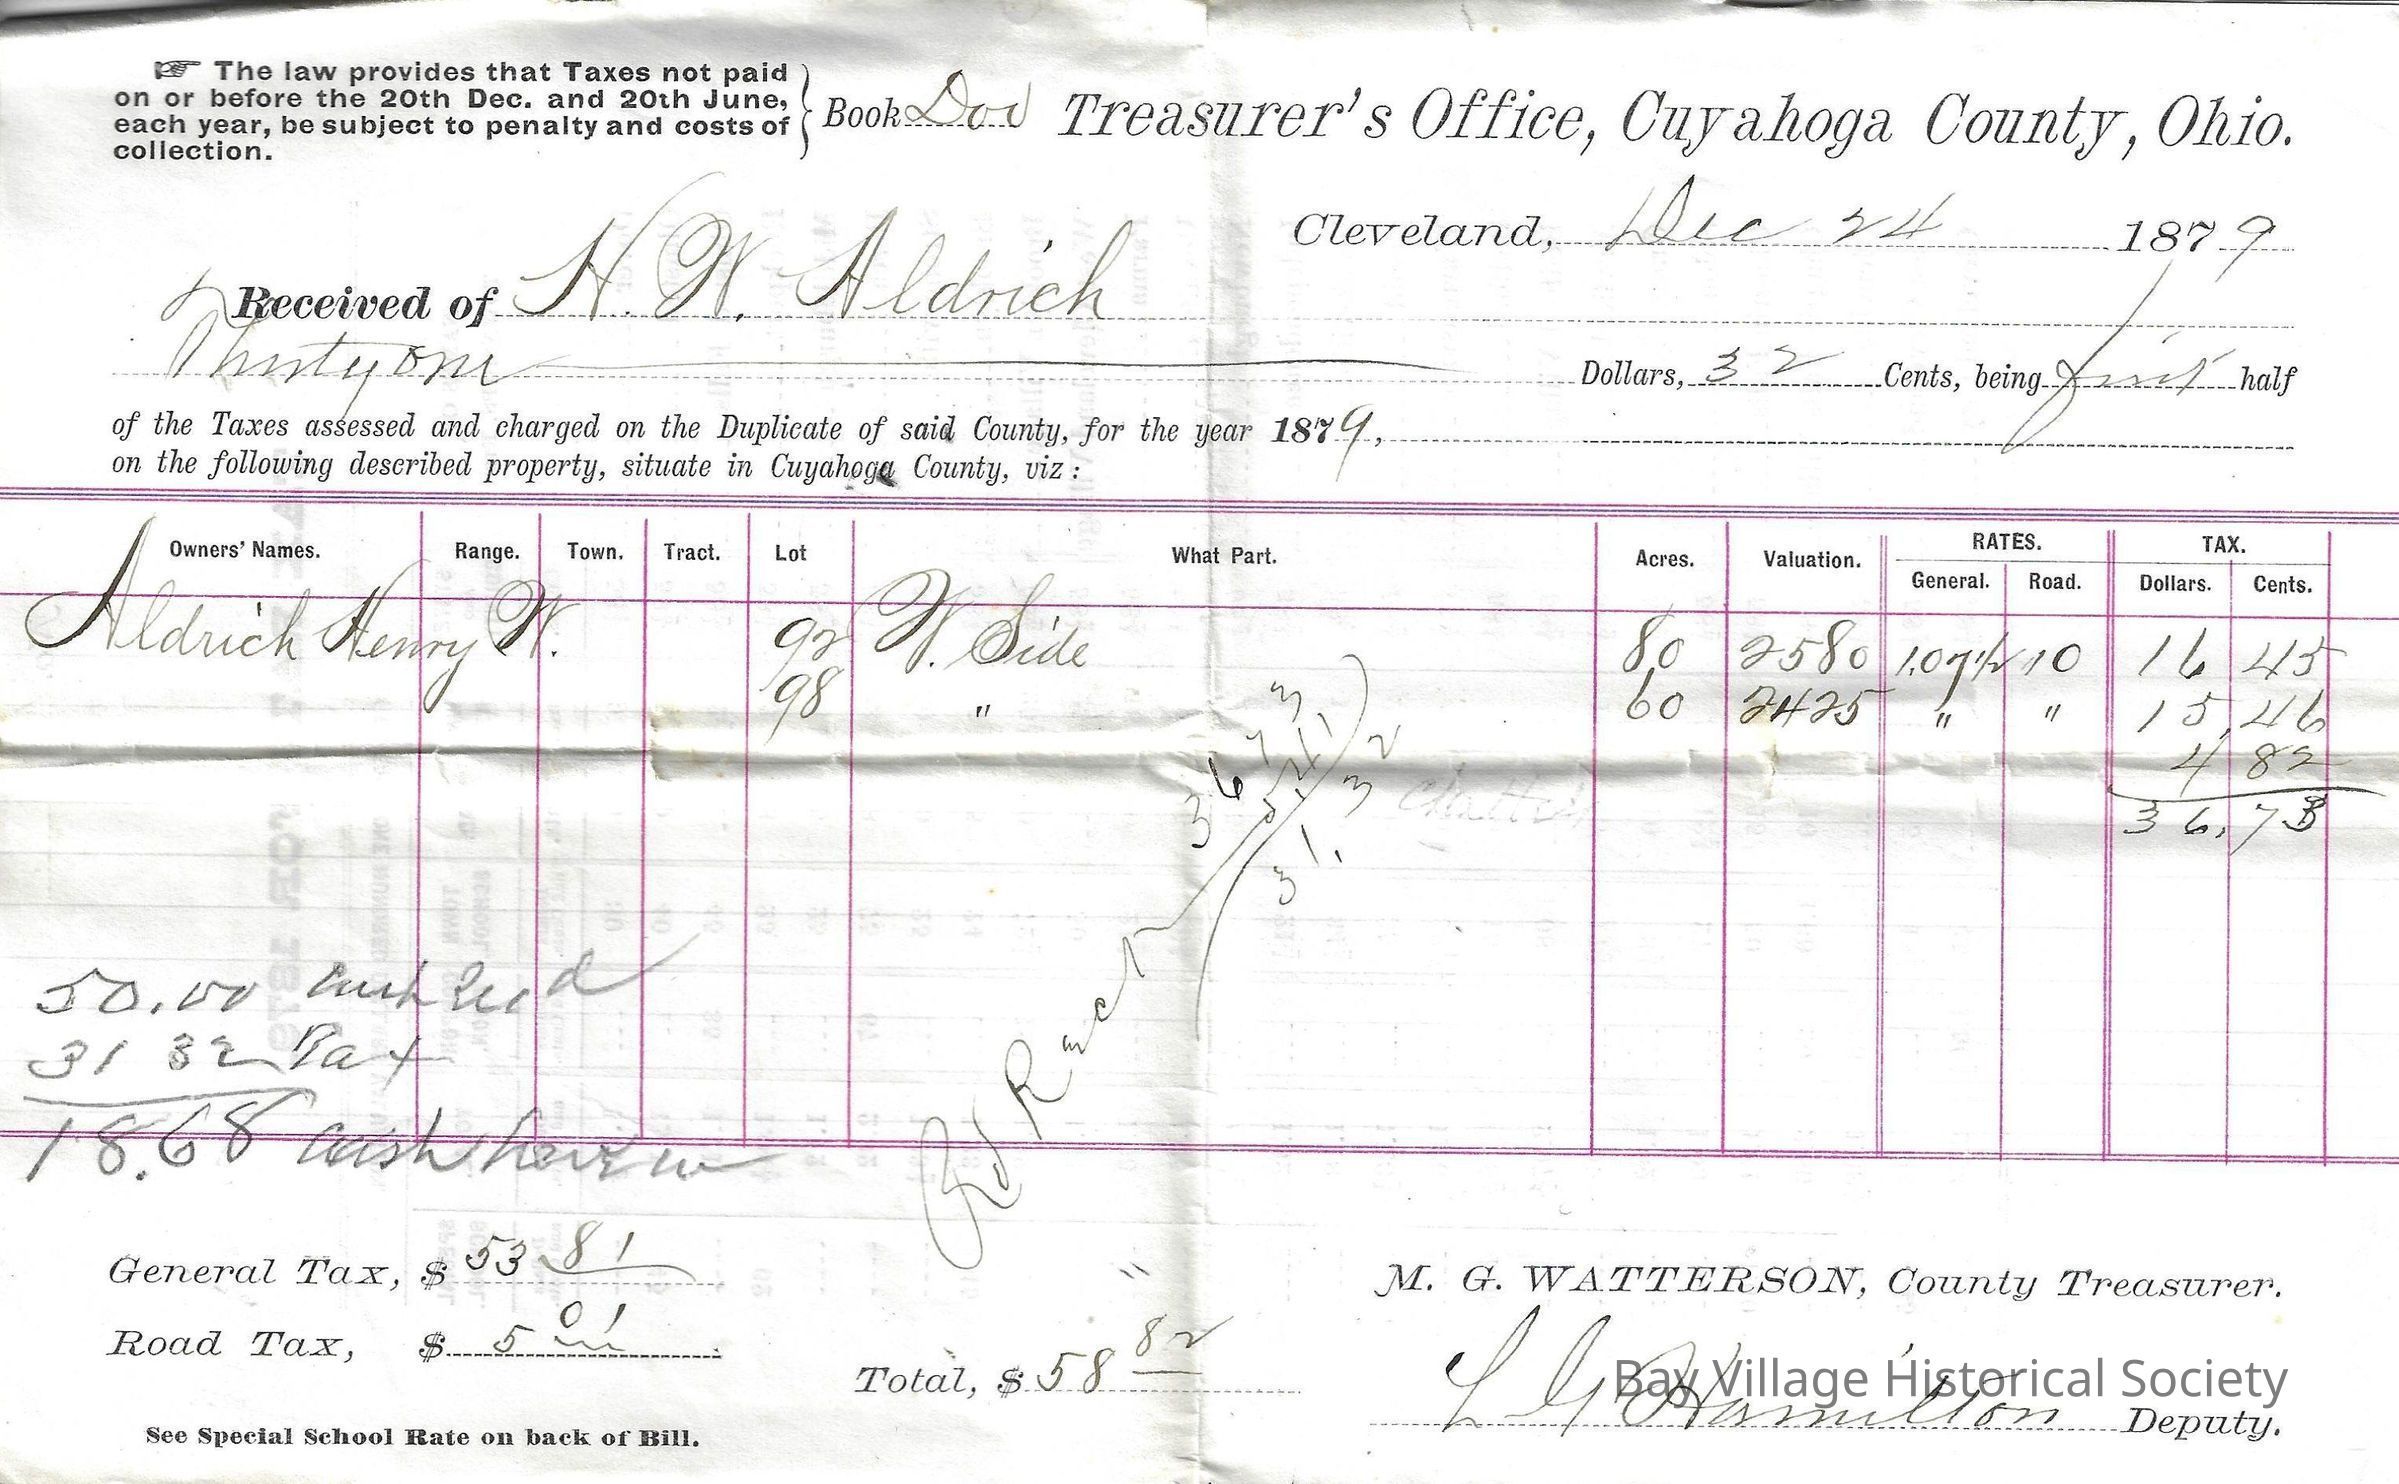 ☞ The law provides that Taxes not paid
on or before the 20th Dec. and 20th June,
each year, be subject to penalty and costs of
collection.
Book Dov Treasurer's Office, Cuyahoga County, Ohio.
Cleveland, Dec 24 1879
Received of H. W. Aldrich
Thirty one Dollars, 32 Cents, being first half
of the Taxes assessed and charged on the Duplicate of said County, for the year 1879,
on the following described property, situate in Cuyahoga County, viz:
Owners' Names. Range. Town. Tract. Lot What Part. Acres. Valuation. RATES. General. Road. TAX. Dollars. Cents.
Aldrich Henry W. 92 W. Side 80 2580 1.07½ 10 16 45
98 " 60 2425 " " 15.46
4 82
36.73
36 73
5.41
31.32
50.00 cash
31 32 Tax
18.68 cash
General Tax, $ 53 81
Road Tax, $ 5 01
Total, $ 58 82
M. G. WATTERSON, County Treasurer.
L G Hamilton Deputy.
See Special School Rate on back of Bill.
Bay Village Historical Society